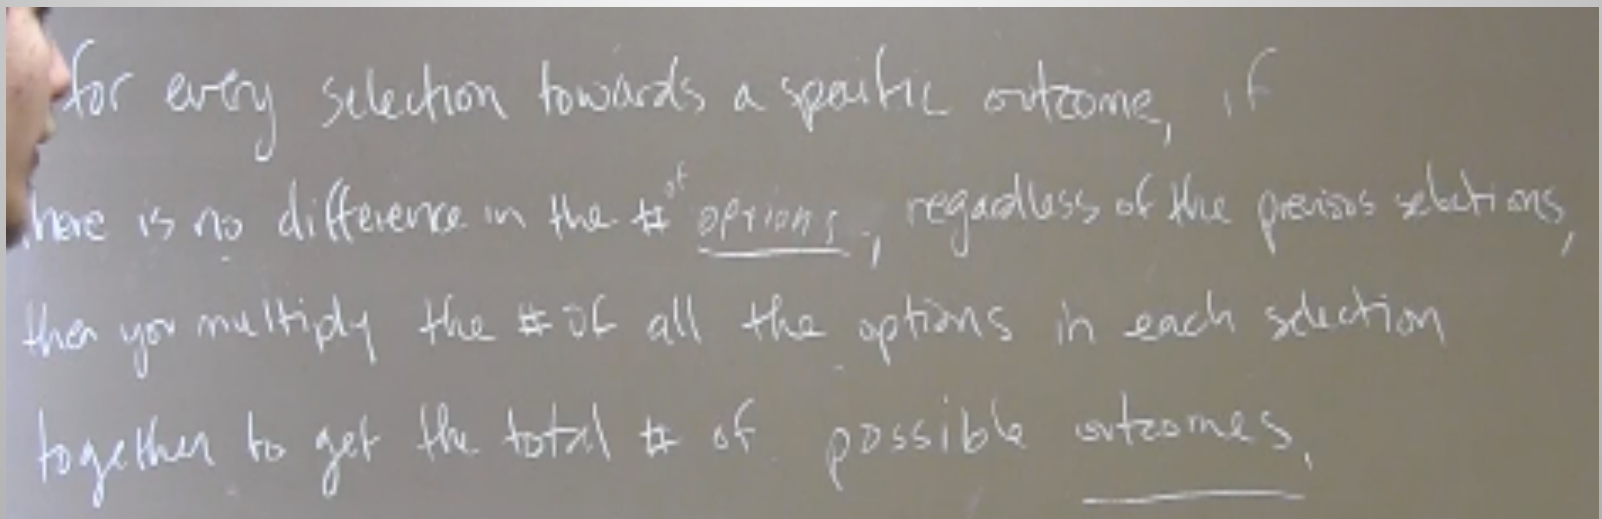 for every selection towards a specific outcome, if
there is no difference in the # of options, regardless of the previous selections,
then you multiply the # of all the options in each selection
together to get the total # of possible outcomes.